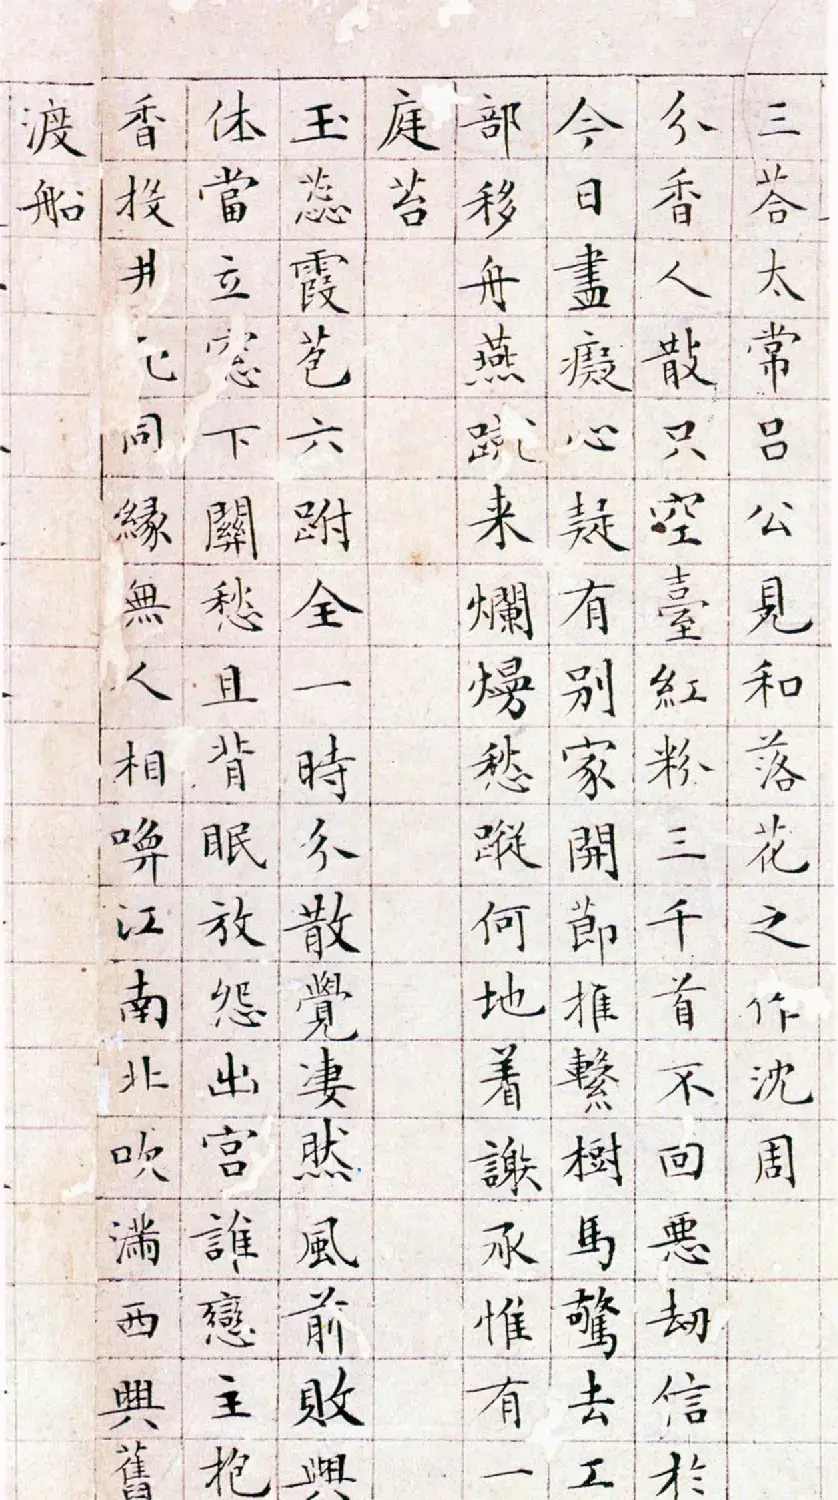 三荅太常呂公見和落花之作沈周
分香人散只空臺紅粉三千首不回悪劫信於
今日盡癡心疑有別家開節推繫樹馬驚去工
部移舟燕蹴来爛熳愁蹤何地着謝承惟有一
庭苔
玉蕊霞苞六跗全一時分散覺凄然風前敗興
休當立窓下關愁且背眠放怨出宮誰戀主抱
香投井死同緣無人相喚江南北吹滿西興舊
渡船